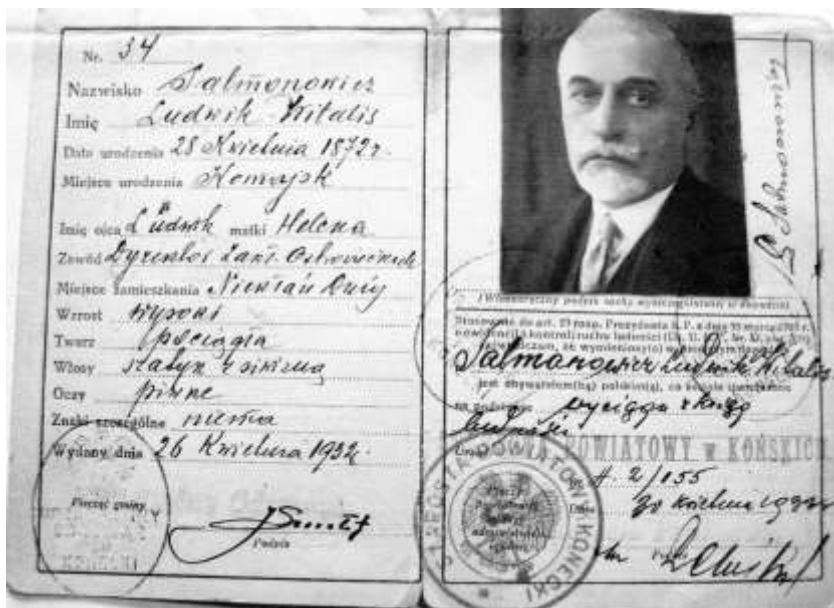 Nr. 34
Nazwisko Salmonowicz
Imię Ludwik Witalis
Data urodzenia 28 Kwietnia 1872 r.
Miejsce urodzenia
Imię ojca Ludwik matki Helena
Zawód Dyrektor Zakł. Ostrowieckich
Miejsce zamieszkania Niekłań Duży
Wzrost wysoki
Twarz pociągła
Włosy szatyn z siwizną
Oczy piwne
Znaki szczególne niema
Wydany dnia 26 Kwietnia 1932 r.
Pieczęć gminy
KONECKI
Podpis
L Salmonowicz
(Własnoręczny podpis osoby wyszczególnionej w dowodzie)
Stosownie do art. 23 rozp. Prezydenta R. P. z dnia 16 marca 1928 r.
o ewidencji i kontroli ruchu ludności
Salmonowicz Ludwik Witalis
jest obywatelem(ką) polskim(ą), co zostało stwierdzone
na podstawie wyciągu z ksiąg
ludności
STAROSTA POWIATOWY w KOŃSKICH
2/155
30 kwietnia 1932
STAROSTA POWIATOWY KONECKI